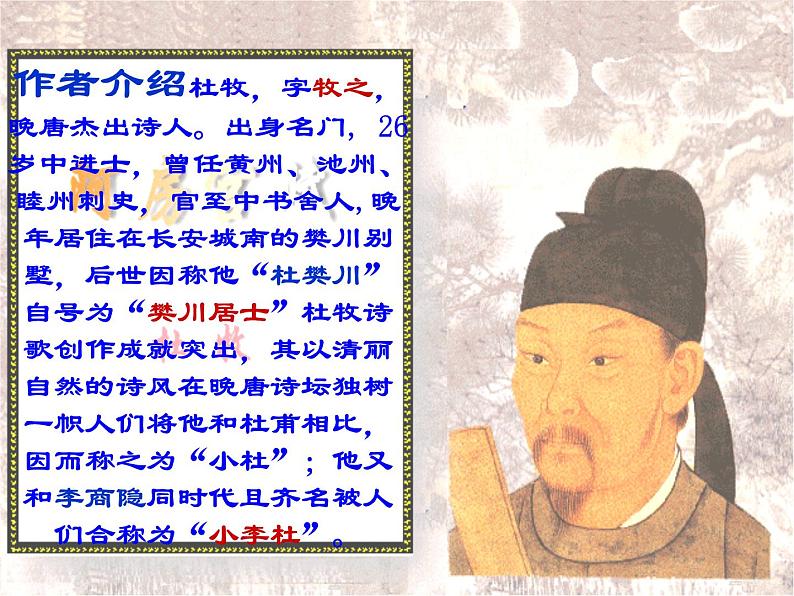 作者介绍杜牧，字牧之，
晚唐杰出诗人。出身名门, 26
岁中进士，曾任黄州、池州、
睦州刺史，官至中书舍人,晚
年居住在长安城南的樊川别
墅，后世因称他“杜樊川”
自号为“樊川居士”杜牧诗
歌创作成就突出，其以清丽
自然的诗风在晚唐诗坛独树
一帜人们将他和杜甫相比，
因而称之为“小杜”；他又
和李商隐同时代且齐名被人
们合称为“小李杜”。
阿房宫赋
杜牧